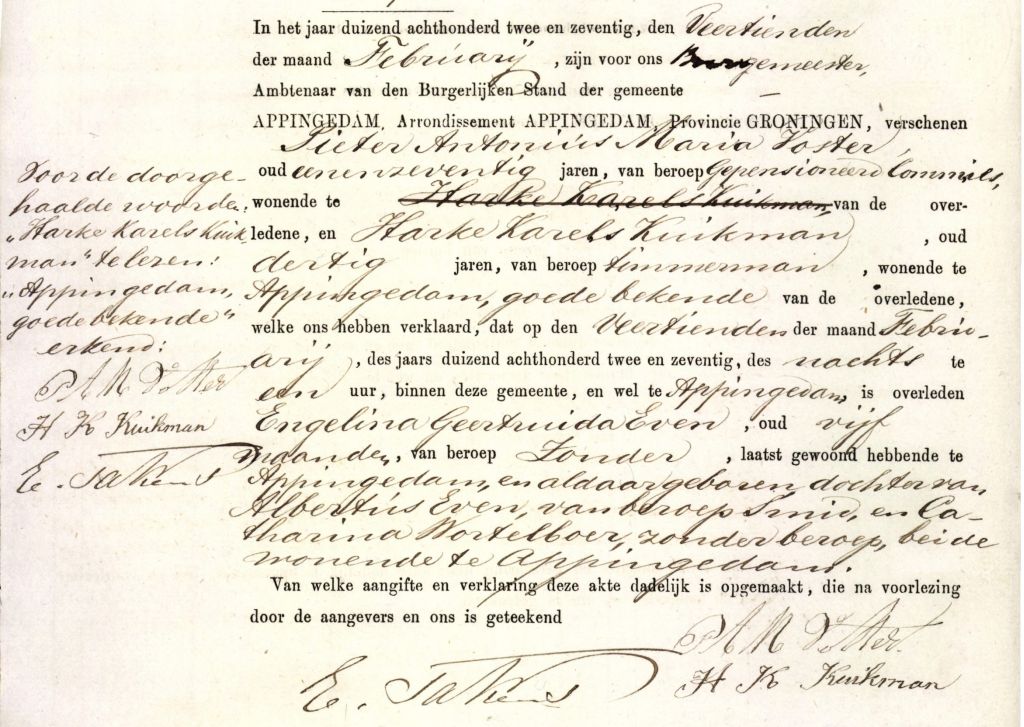 In het jaar duizend achthonderd twee en zeventig, den Veertienden
der maand Februarij , zijn voor ons Burgemeester,
Ambtenaar van den Burgerlijken Stand der gemeente
APPINGEDAM, Arrondissement APPINGEDAM, Provincie GRONINGEN, verschenen
Pieter Antonius Maria Voster,
oud eenenzeventig jaren, van beroep Gepensioneerd Commies,
wonende te Harke Karels Kuikman, van de over-
ledene, en Harke Karels Kuikman , oud
dertig jaren, van beroep timmerman , wonende te
Appingedam, goede bekende van de overledene,
welke ons hebben verklaard, dat op den Veertienden der maand Febru-
arij , des jaars duizend achthonderd twee en zeventig, des nachts te
een uur, binnen deze gemeente, en wel te Appingedam, is overleden
Engelina Geertruida Even , oud vijf
maanden, van beroep Zonder , laatst gewoond hebbende te
Appingedam, en aldaar geboren, dochter van
Albertus Even, van beroep Smid, en Ca-
tharina Wortelboer, zonder beroep, beide
wonende te Appingedam.
Van welke aangifte en verklaring deze akte dadelijk is opgemaakt, die na voorlezing
door de aangevers en ons is geteekend
P A M Voster.
H K Kuikman
E. Takens
Voor de doorge-
haalde woorden
„Harke Karels Kuik
man" te lezen:
„Appingedam,
goede bekende"
erkend:
P A M Voster
H K Kuikman
E. Takens